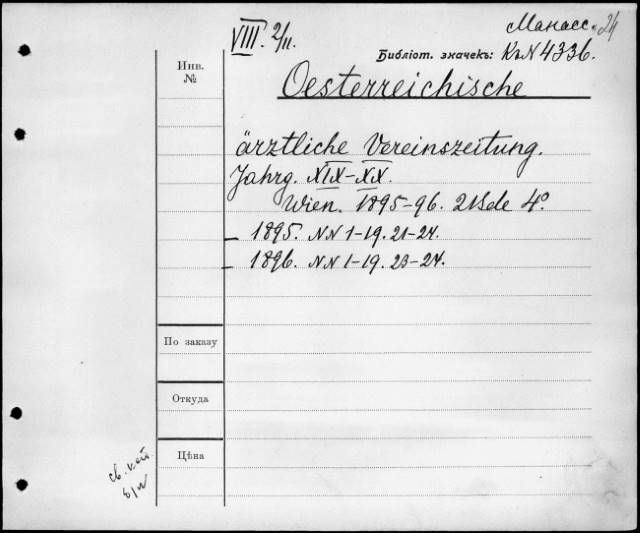 VIII. 2/11.
Манасс. 24
Библіот. значекъ: KnN 4336.
Инв.
№
Oesterreichische
ärztliche Vereinszeitung.
Jahrg. XIX-XX.
Wien. 1895-96. 2 Bde 4°
- 1895. NN 1-19. 21-24.
- 1896. NN 1-19. 23-24.
По заказу
Откуда
Цѣна
св. кат.
б/н